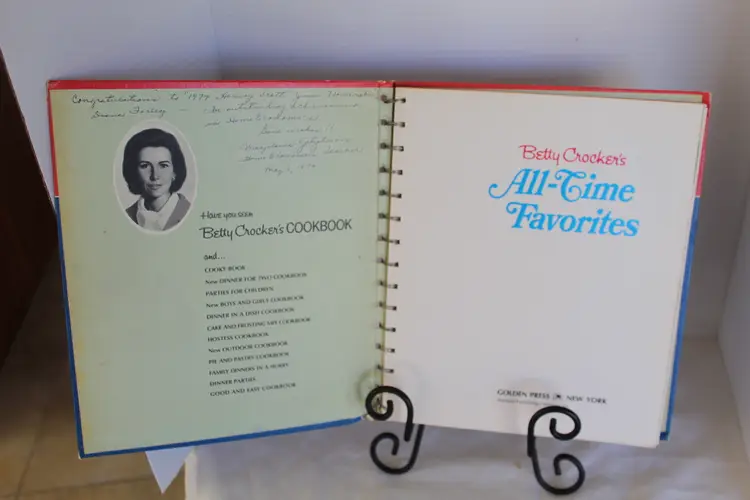 Congratulations to 1974 Harvey Scott Junior
Diana Foxley — for outstanding achievement
in Home Economics
Good wishes!!
Home Economics
May 1, 1974
Have you seen
Betty Crocker's COOKBOOK
and...
COOKY BOOK
New DINNER FOR TWO COOKBOOK
PARTIES FOR CHILDREN
New BOYS AND GIRLS COOKBOOK
DINNER IN A DISH COOKBOOK
CAKE AND FROSTING MIX COOKBOOK
HOSTESS COOKBOOK
New OUTDOOR COOKBOOK
PIE AND PASTRY COOKBOOK
FAMILY DINNERS IN A HURRY
DINNER PARTIES
GOOD AND EASY COOKBOOK
Betty Crocker's
All-Time
Favorites
GOLDEN PRESS NEW YORK